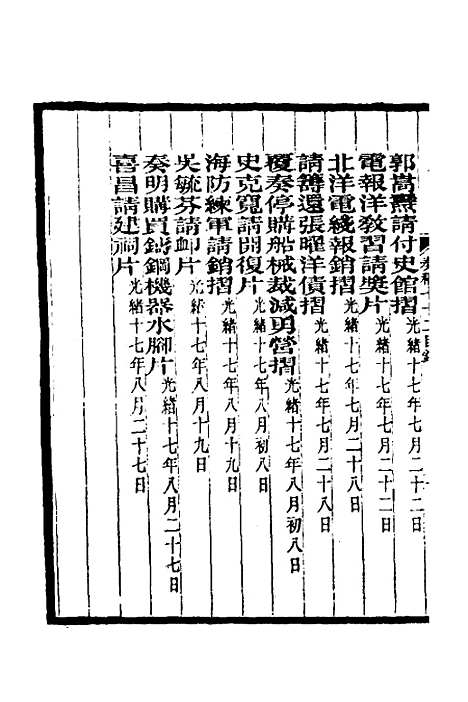 郭嵩燾請付史館摺光緒十七年七月二十二日
電報洋教習請獎片光緒十七年七月二十二日
北洋電綫報銷摺光緒十七年七月二十八日
請籌還張曜洋債摺光緒十七年七月二十八日
覆奏停購船械裁減勇營摺光緒十七年八月初八日
史克寬請開復片光緒十七年八月初八日
海防練軍請銷摺光緒十七年八月十九日
吳毓芬請卹片光緒十七年八月十九日
奏明購買鍊鋼機器水腳片光緒十七年八月二十七日
喜昌請建祠片光緒十七年八月二十七日